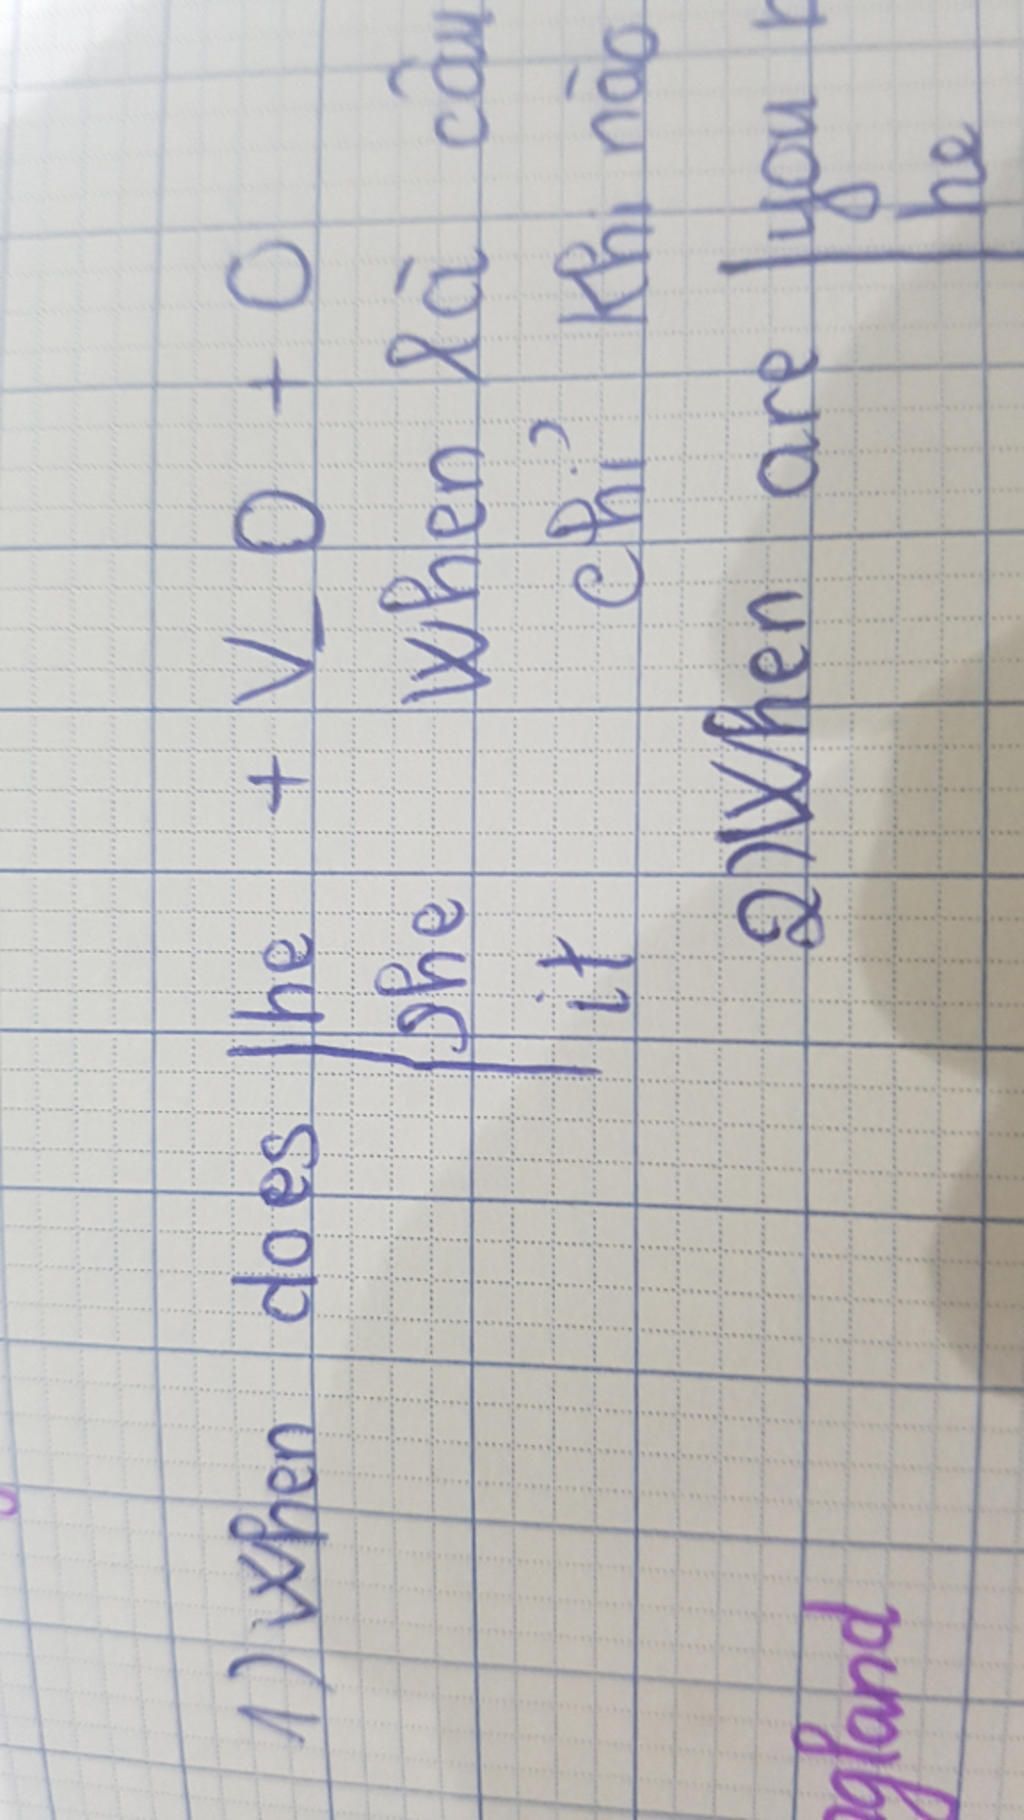 1) When does | he + V_0 + 0
she When là câu
it chỉ khi nào
2) When are | you
he